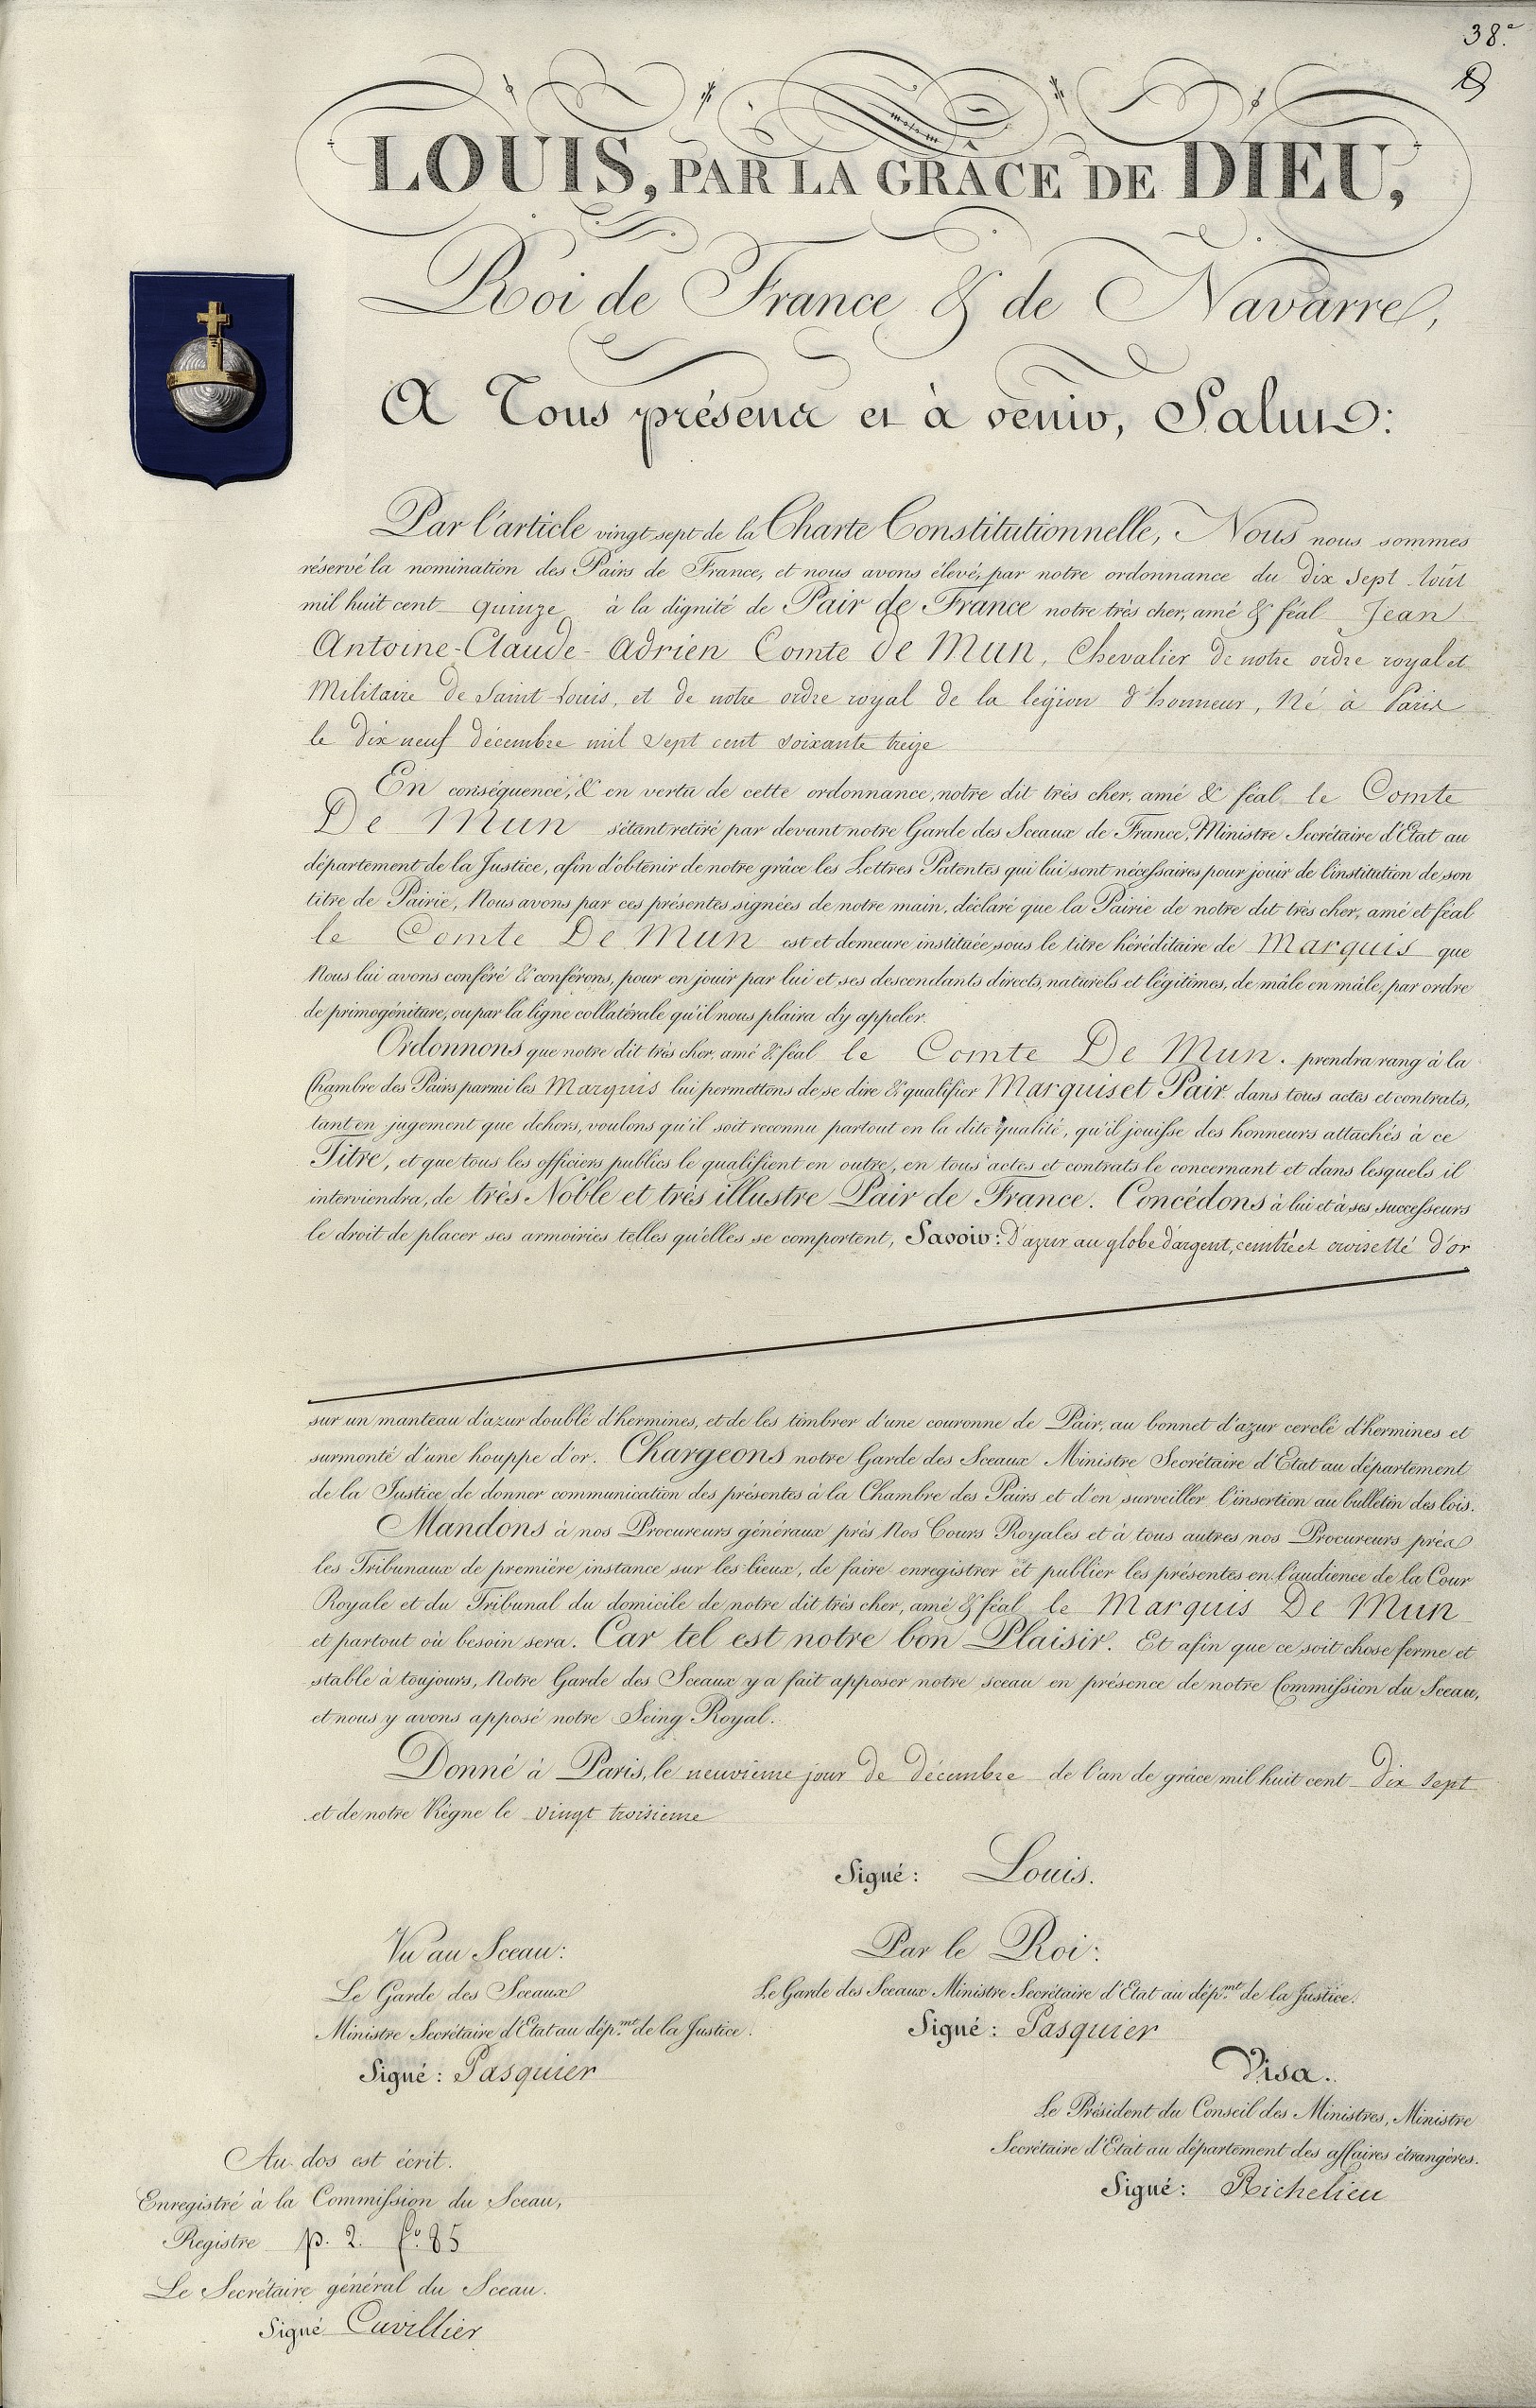 38.e
LOUIS, PAR LA GRÂCE DE DIEU,
Roi de France & de Navarre,
A Tous présens et à venir, Salut:
Par l'article vingt sept de la Charte Constitutionnelle, Nous nous sommes
réservé la nomination des Pairs de France, et nous avons élevé, par notre ordonnance du dix sept Aoüt
mil huit cent quinze à la dignité de Pair de France notre très cher, amé & féal Jean
Antoine-Claude-Adrien Comte de Mun, Chevalier de notre ordre royal et
Militaire de Saint Louis, et de notre ordre royal de la légion d'honneur, Né à Paris
le dix neuf décembre mil sept cent soixante treize
En conséquence, & en vertu de cette ordonnance, notre dit très cher, amé & féal le Comte
De Mun s'étant retiré par devant notre Garde des Sceaux de France, Ministre Secrétaire d'Etat au
département de la Justice, afin d'obtenir de notre grâce les Lettres Patentes qui lui sont nécessaires pour jouir de l'institution de son
titre de Pairie, Nous avons par ces présentes signées de notre main, déclaré que la Pairie de notre dit très cher, amé et féal
le Comte De Mun est et demeure instituée sous le titre héréditaire de Marquis que
Nous lui avons conféré & conférons, pour en jouir par lui et ses descendants directs, naturels et légitimes, de mâle en mâle, par ordre
de primogéniture, ou par la ligne collatérale qu'il nous plaira d'y appeler.
Ordonnons que notre dit très cher, amé & féal le Comte De Mun. prendra rang à la
Chambre des Pairs parmi les Marquis lui permettons de se dire & qualifier Marquis et Pair dans tous actes et contrats,
tant en jugement que dehors, voulons qu'il soit reconnu partout en la dite qualité, qu'il jouisse des honneurs attachés à ce
Titre, et que tous les officiers publics le qualifient en outre, en tous actes et contrats le concernant et dans lesquels il
interviendra, de très Noble et très illustre Pair de France. Concédons à lui et à ses successeurs
le droit de placer ses armoiries telles qu'elles se comportent, Savoir: D'azur au globe d'argent, ceintré et croisetté d'or
sur un manteau d'azur doublé d'hermines, et de les timbrer d'une couronne de Pair, au bonnet d'azur cerclé d'hermines et
surmonté d'une houppe d'or. Chargeons notre Garde des Sceaux Ministre Secrétaire d'Etat au département
de la Justice de donner communication des présentes à la Chambre des Pairs et d'en surveiller l'insertion au bulletin des lois.
Mandons à nos Procureurs généraux près Nos Cours Royales et à tous autres nos Procureurs près
les Tribunaux de première instance sur les lieux, de faire enregistrer et publier les présentes en l'audience de la Cour
Royale et du Tribunal du domicile de notre dit très cher, amé & féal le Marquis De Mun
et partout où besoin sera. Car tel est notre bon Plaisir. Et afin que ce soit chose ferme et
stable à toujours, Notre Garde des Sceaux y a fait apposer notre sceau en présence de notre Commission du Sceau,
et nous y avons apposé notre Seing Royal.
Donné à Paris, le neuvieme jour de décembre de l'an de grâce mil huit cent dix sept
et de notre Règne le vingt troisieme
Signé: Louis.
Vu au Sceau:
Le Garde des Sceaux
Ministre Secrétaire d'Etat au dép.mt de la Justice.
Signé: Pasquier
Par le Roi:
Le Garde des Sceaux Ministre Secrétaire d'Etat au dép.mt de la Justice.
Signé: Pasquier
Visa.
Le Président du Conseil des Ministres, Ministre
Secrétaire d'Etat au département des affaires étrangères.
Signé: Richelieu
Au dos est écrit.
Enregistré à la Commission du Sceau,
Registre p. 2. f.o 85
Le Secrétaire général du Sceau.
Signé Cuvillier